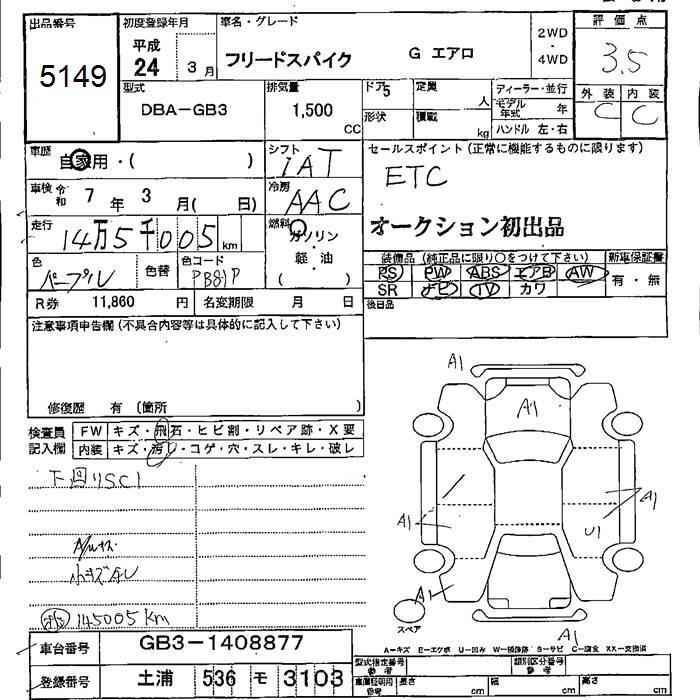 出品番号 初度登録年月 車名・グレード 2WD・4WD 評価点
5149 平成 24 3月 フリードスパイク G エアロ 3.5
型式 排気量 ドア5 定員 人 ディーラー・並行 外装 内装
DBA-GB3 1,500 CC 形状 積載 kg モデル年式 年 C C
ハンドル 左・右
車歴 自家用・( ) シフト IAT セールスポイント(正常に機能するものに限ります)
車検 令和 7年 3月( 日) 冷房 AAC ETC
走行 14万5千005km 燃料 ガソリン オークション初出品
軽・油 ( )
装備品(純正品に限り○をつけて下さい) 新車保証書
色 パープル 色替 色コード PB81P PS PW ABS エアB AW 有・無
SR ナビ TV カワ
R券 11,860 円 名変期限 月 日 後日品
注意事項申告欄(不具合内容等は具体的に記入して下さい)
修復歴 有 (箇所
検査員記入欄 FW キズ・飛石・ヒビ割・リペア跡・X要
内装 キズ・汚レ・コゲ・穴・スレ・キレ・破レ
下回りSC1
A/Wキズ
小キズAU
145005km
A1
A1
A1
A1
U1
A1
スペア
A1
車台番号 GB3-1408877
A-キズ E-エクボ U-凹み W-補修跡 S-サビ C-腐食 XX-交換済
登録番号 土浦 536 モ 3103
型式指定番号 参考 類別区分番号 参考
車庫証明用 参考 長さ cm 幅 cm 高さ cm